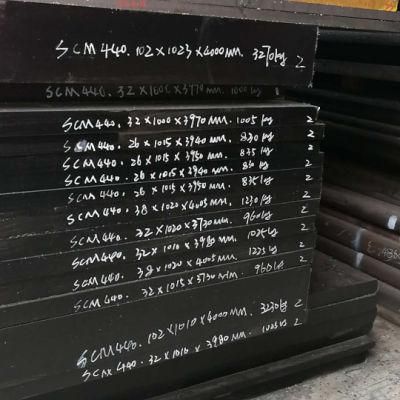 SCM 440. 102 × 1023 × 4000 MM. 3270 kg 2
SCM 440. 32 × 1000 × 3770 MM. 1000 kg
SCM 440. 32 × 1000 × 3970 MM. 1005 kg 2
SCM 440. 26 × 1015 × 3940 MM. 830 kg 2
SCM 440. 26 × 1015 × 3950 MM. 835 kg 2
SCM 440. 26 × 1015 × 3940 MM. 830 kg 2
SCM 440. 26 × 1015 × 3950 MM. 835 kg 2
SCM 440. 38 × 1020 × 4005 MM. 1230 kg 2
SCM 440. 32 × 1020 × 3730 MM. 960 kg 2
SCM 440. 32 × 1010 × 3980 MM. 1025 kg 2
SCM 440. 38 × 1020 × 4005 MM. 1225 kg 2
SCM 440. 32 × 1015 × 3730 MM. 960 kg 2
SCM 440. 102 × 1010 × 4000 MM. 3230 kg 2
SCM 440. 32 × 1010 × 3980 MM. 1025 kg 2